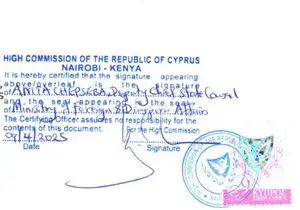 HIGH COMMISSION OF THE REPUBLIC OF CYPRUS
NAIROBI - KENYA
It is hereby certified that the signature appearing
above/overleaf is the signature
of ANITA CHEPSEBA, Deputy Chief State Counsel
and the seal appearing is the seal
of Ministry of Foreign & Diaspora Affairs
The Certifying Officer assumes no responsibility for the
contents of this document. For the High Commission
09/4/2025
Date Signature
ΚΥΠΡΟΣ